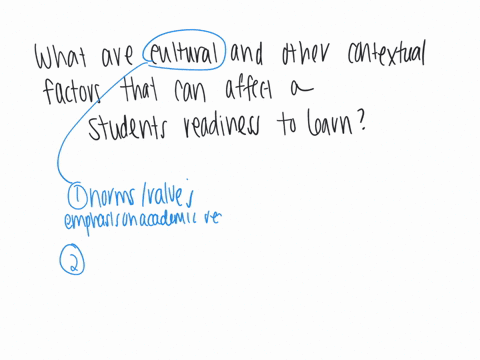 What are cultural and other contextual
factors that can affect a
students readiness to learn?
① norms/value's
emphasis on academic re
②